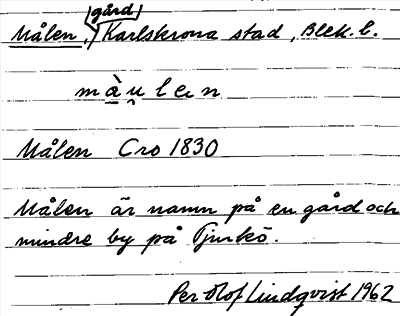 gård
Målen, Karlskrona stad, Blek. l.
màu̯len
Målen Cro 1830
Målen är namn på en gård och
mindre by på Tjurkö.
Per Olof Lindqvist 1962